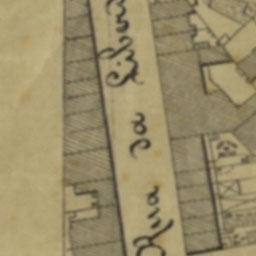 Rua da Liber